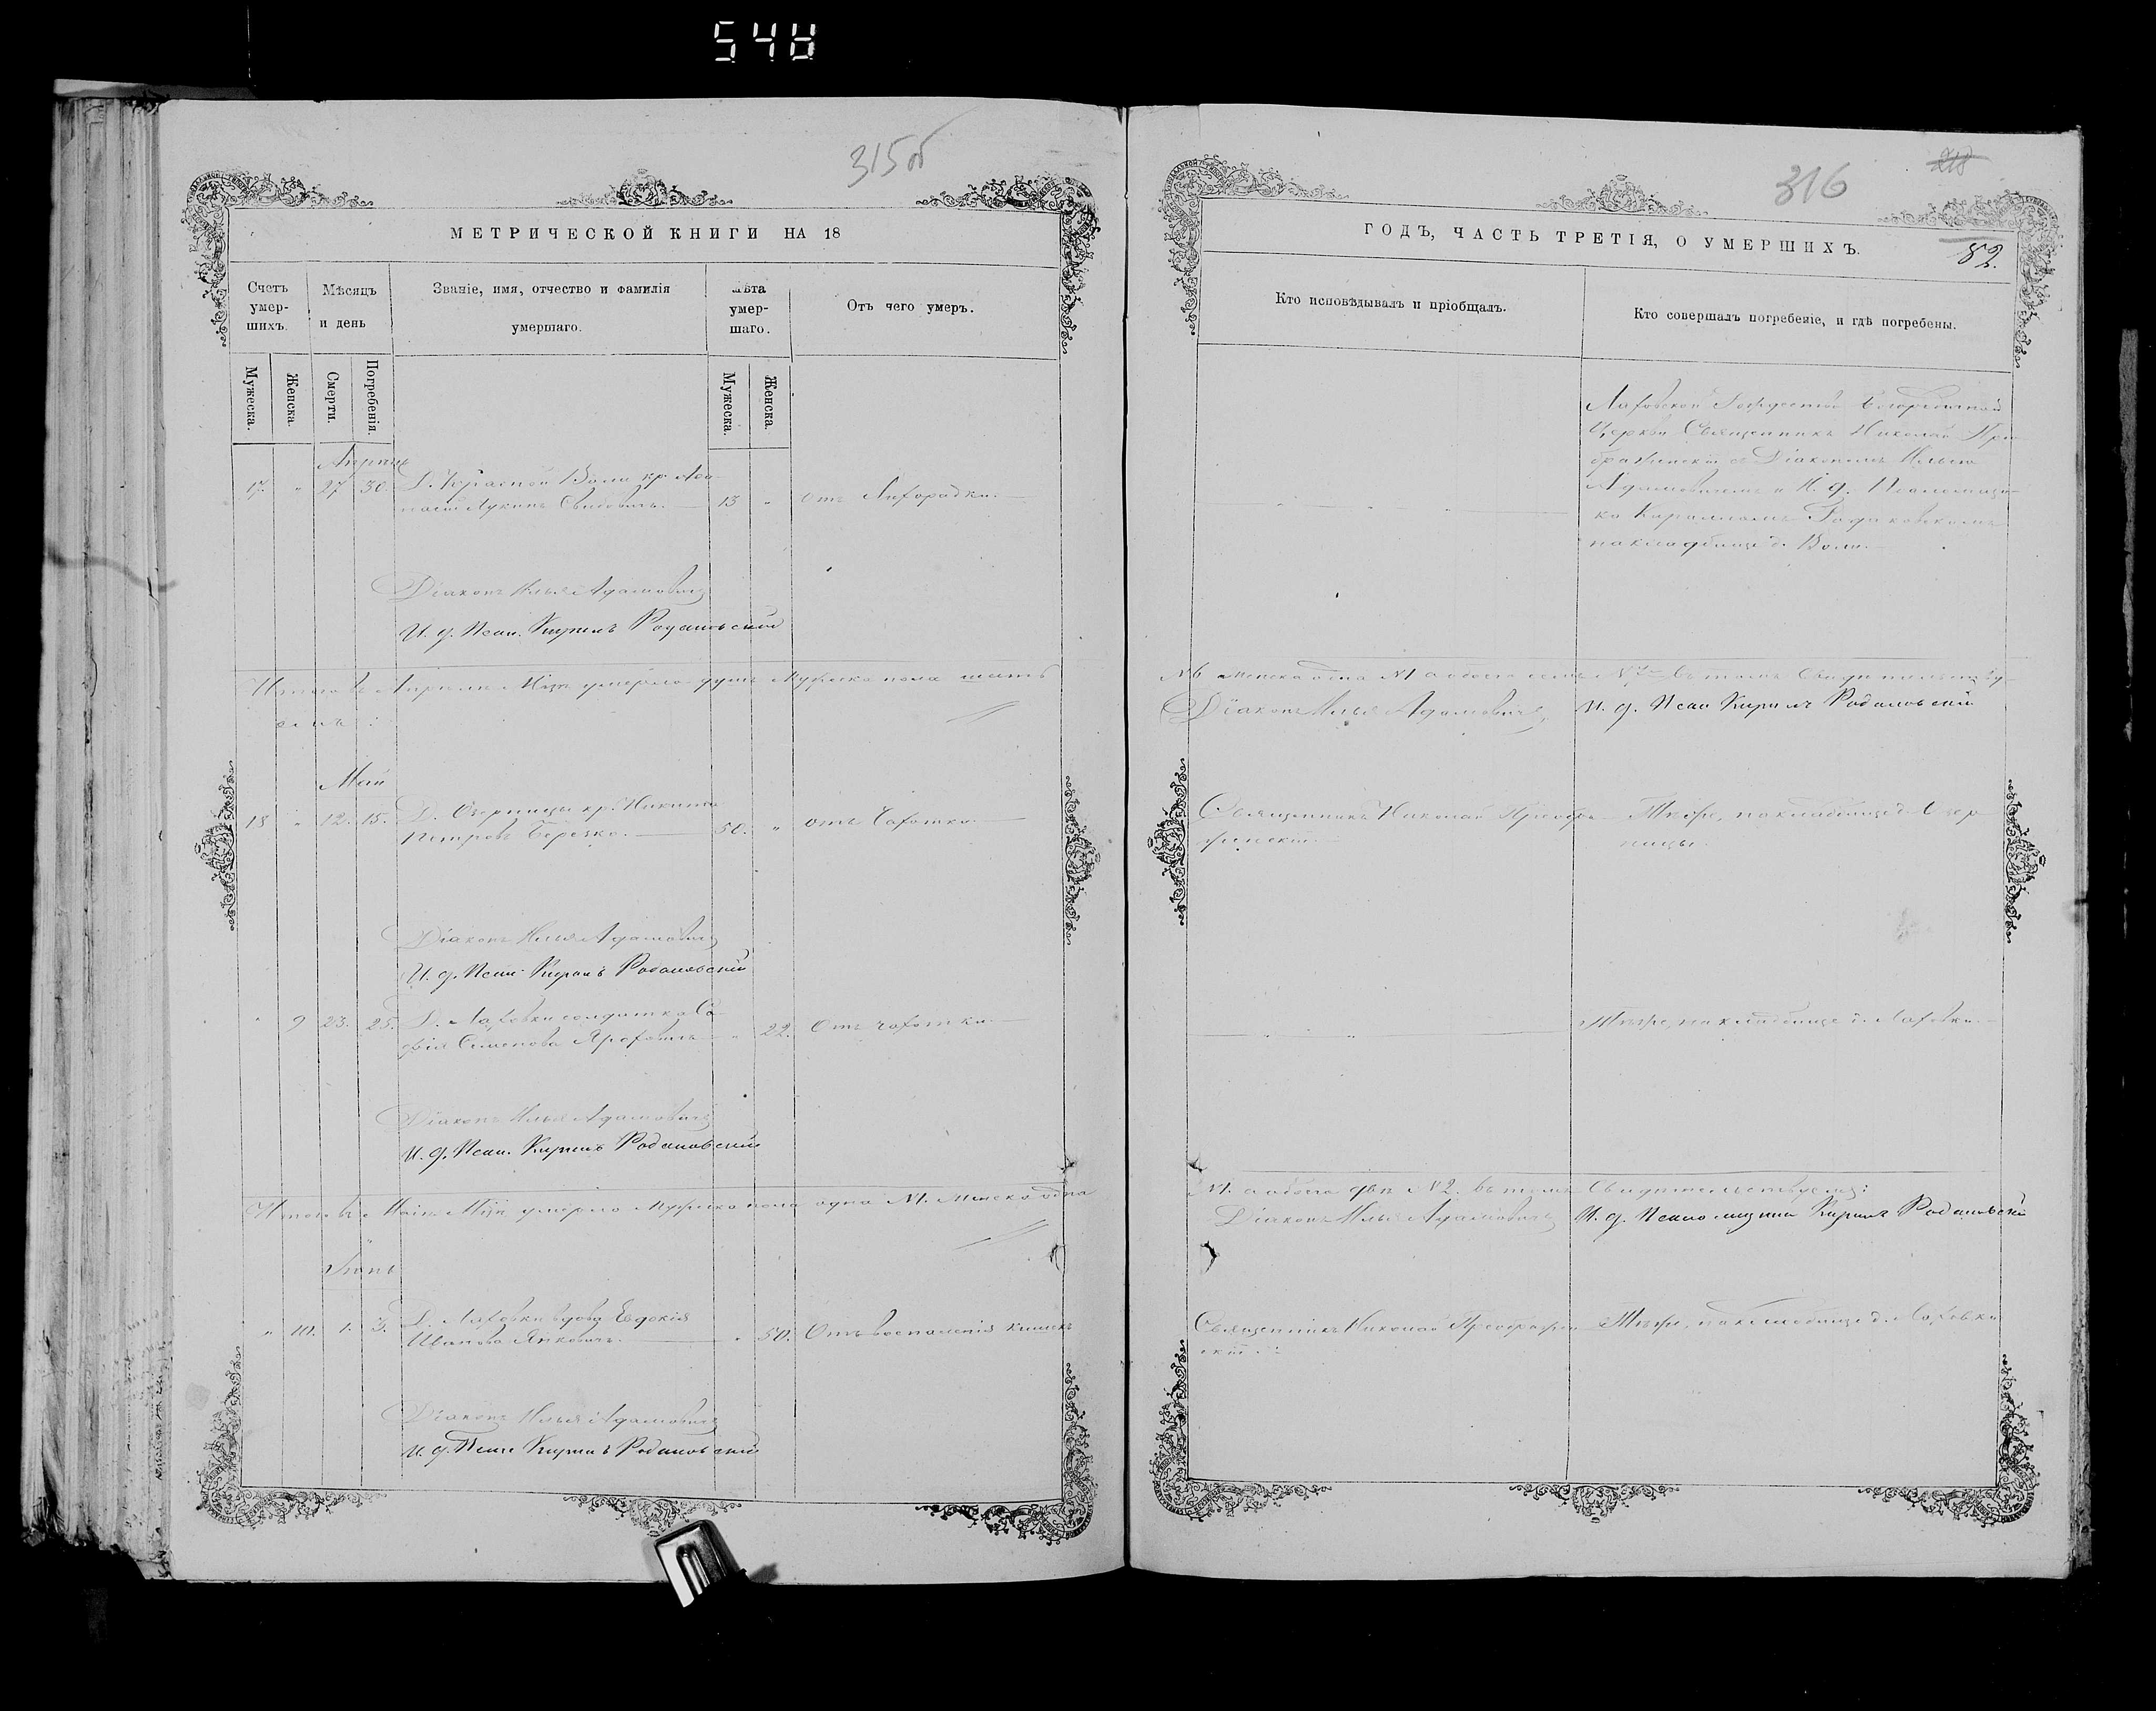 548
315об
МЕТРИЧЕСКОЙ КНИГИ НА 18
Счетъ умер-шихъ.
Мѣсяцъ и день
Званіе, имя, отчество и фамилія умершаго.
Лѣта умер-шаго.
Отъ чего умеръ.
Мужеска.
Женска.
Смерти.
Погребенія.
Мужеска.
Женска.
Апрель
17. " 27 30. Д. Красной Воли кр.
Лукинъ 13 " отъ Лихорадки.
Діаконъ Илья Адамовичъ
И. д. Псал. Кирилъ Родаковскій
Итого въ Апрѣлѣ М-цѣ умерло душъ Мужеска пола шесть
семь:
Май
18 " 12. 15. Д. Озерницы кр. Никита
Петровъ Березко. 50. " отъ Чахотки.
Діаконъ Илья Адамовичъ
И. д. Псал. Кирилъ Родаковскій
" 9 23. 25. Д. Лаховки солдатка Со-
фія Семенова " 22. Отъ чахотки.
Діаконъ Илья Адамовичъ
И. д. Псал. Кирилъ Родаковскій
Итого въ Маѣ М-цѣ умерло Мужеска пола одна №1. Женска одна
Іюнь
" 10. 1. 3. Д. Лаховки вдова Евдокія
Иванова Янковичъ. " 50. Отъ воспаленія кишекъ
Діаконъ Илья Адамовичъ
И. д. Псал. Кирилъ Родаковскій
316
82.
ГОДЪ, ЧАСТЬ ТРЕТІЯ, О УМЕРШИХЪ.
Кто исповѣдывалъ и пріобщалъ.
Кто совершалъ погребеніе, и гдѣ погребены.
Лаховской Рождество Богородичной
Церкви Священникъ Николай Прео-
браженскій съ Діакономъ Ильею
Адамовичемъ и И. д. Псаломщи-
ка Кирилломъ Родаковскимъ
на кладбище д. Воли.
№6 Женска одна №1 а обоего семь №7 въ томъ Свидѣтельству-
Діаконъ Илья Адамовичъ, И. д. Псал Кирилъ Родаковскій
Священникъ Николай Преобра-
женскій.
Тѣже, на кладбище д. Озер-
ницы.
Тѣже, на кладбище д. Лаховки.
№1. а обоего двѣ №2. въ томъ Свидѣтельствуемъ:
Діаконъ Илья Адамовичъ И. д. Псаломщика Кирилъ Родаковскій
Священникъ Николай Преображен-
скій.
Тѣже, на кладбище д. Лаховки